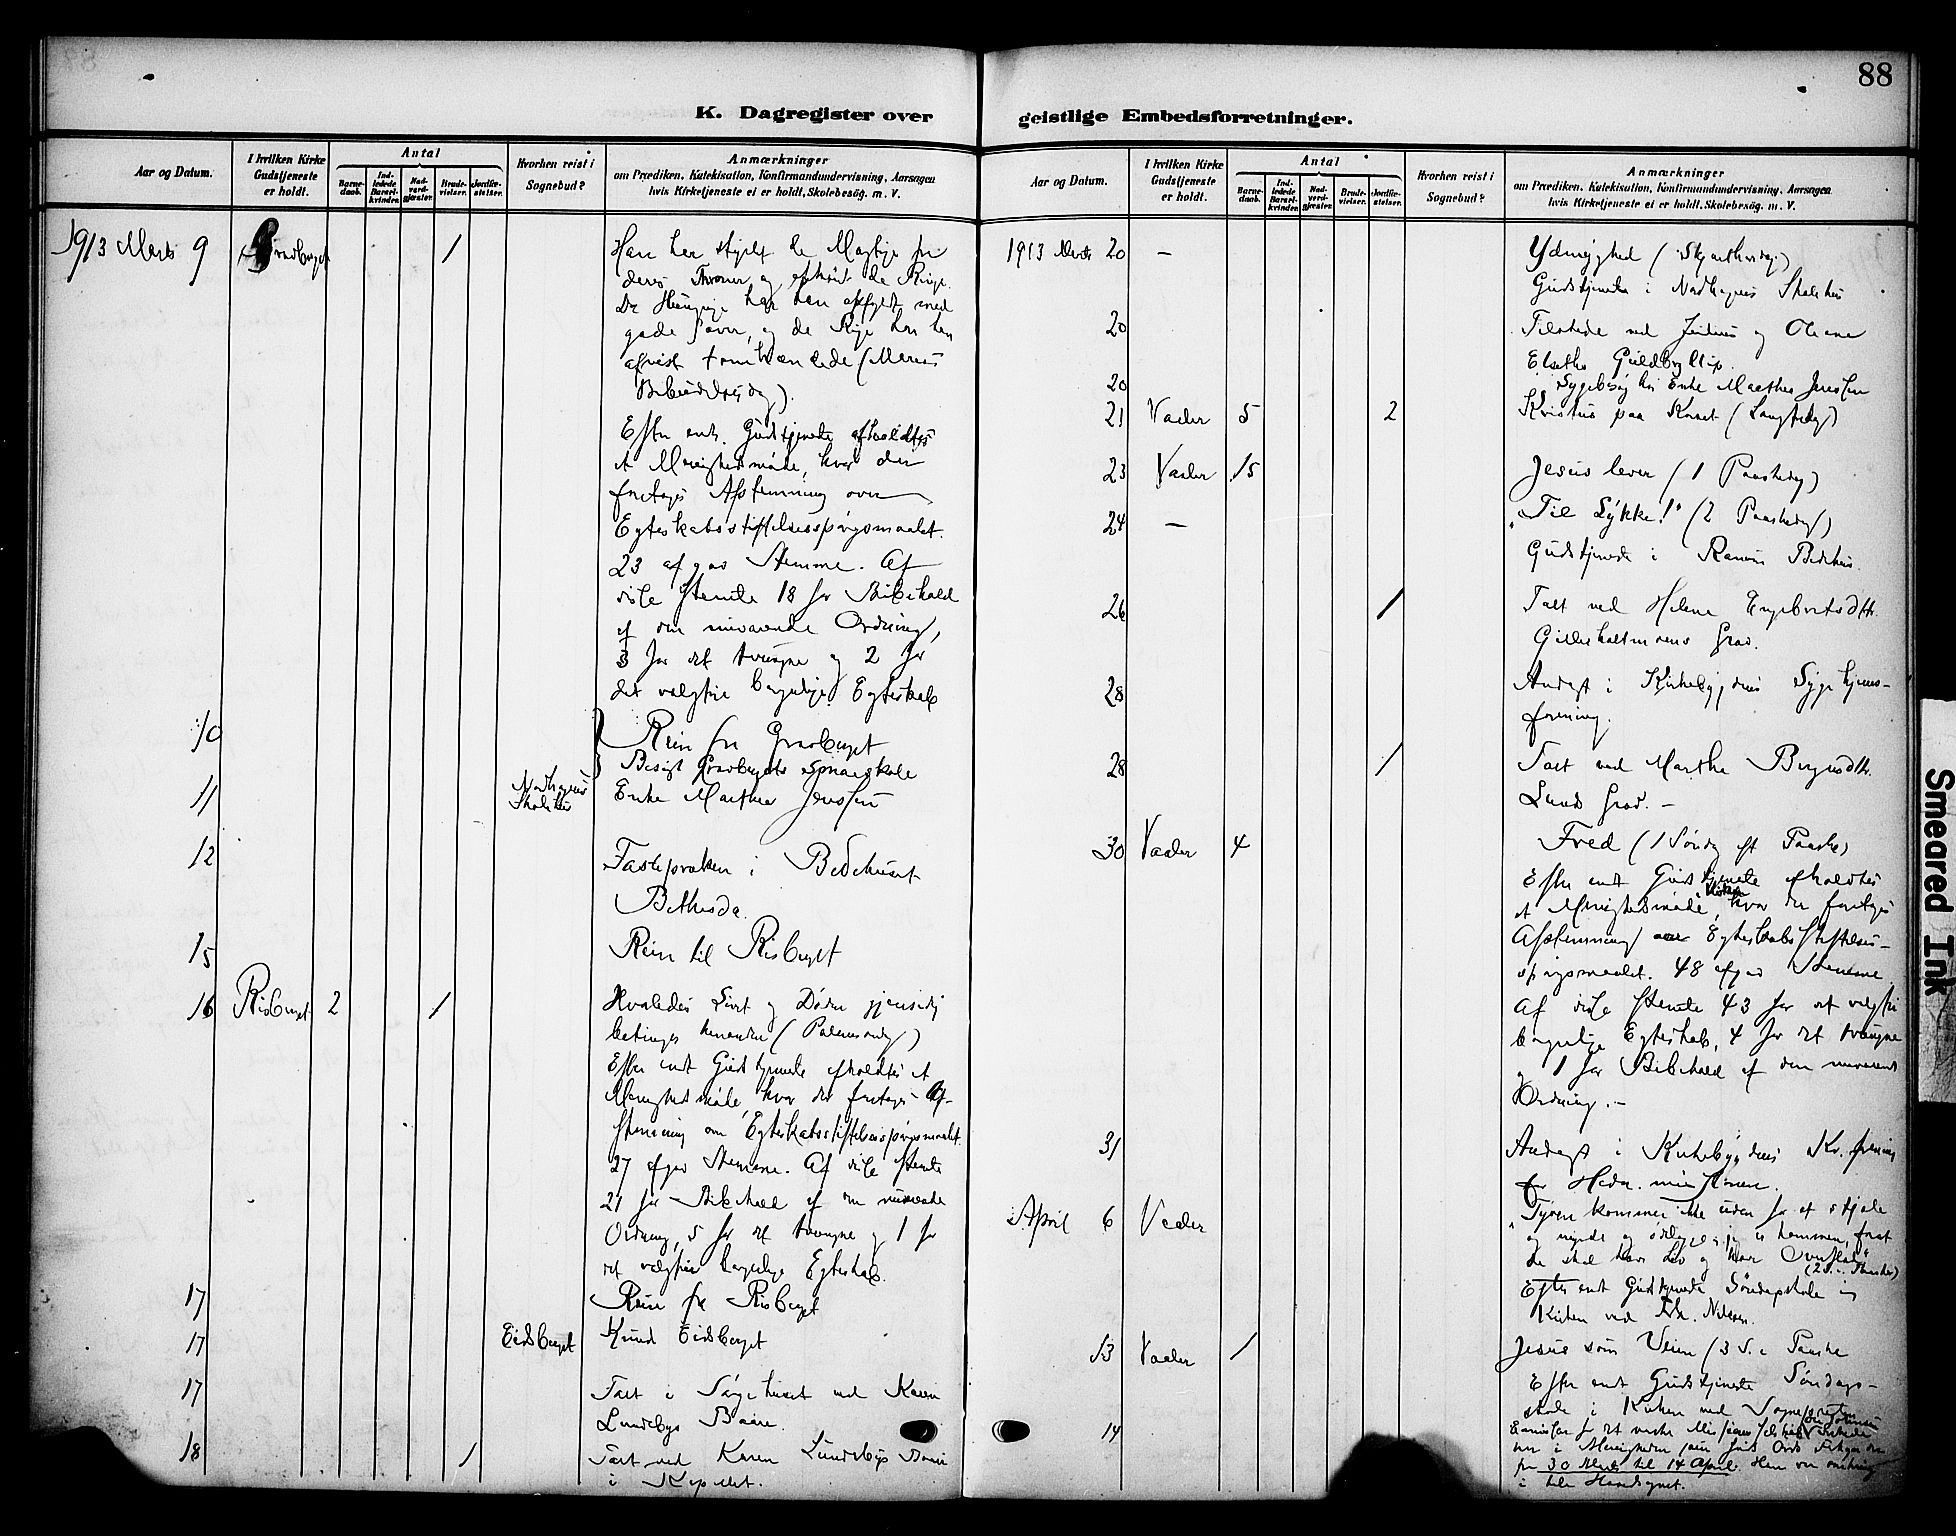 88
K. Dagregister over geistlige Embedsforretninger.
Aar og Datum.
I hvilken Kirke Gudstjeneste er holdt.
Antal
Barne-daab.
Ind-ledede Barsel-kvinder.
Nad-verd-gjæster.
Brude-vielser.
Jordfæ-stelser.
Hvorhen reist i Sognebud?
Anmærkninger
om Prædiken, Katekisation, Konfirmandundervisning, Aarsagen
hvis Kirketjeneste ei er holdt, Skolebesøg. m. V.
1913 Marts 9 Gravberget 1 Han har styrtet de Mægtige fra
deres Troner og ophøiet de Ringe.
De Hungrige har han opfyldt med
gode Gaver, og de Rige har han
afvist tomhændede (Marias
Bebudelsesdag).
Efter endt Gudstjeneste afholdtes
et Menighedsmøde, hvor der
foretages Afstemning over
Egteskabsstiftelsesspørgsmaalet.
23 afgav Stemme. Af
disse stemte 18 for Bibehold
af den nuværende Ordning,
3 for det tvungne og 2 for
det valgfrie borgerlige Egteskab
10 Rein fra Gravberget
Besøgt Gravbergets Smaaskole
11 Nordhagens Skolehus Enke Marthea Jenssen
12 Fastepræken i Bedehuset
Bethesda.
15 Rein til Risberget
16 Risberget 2 1 Hvorledes Livet og Døden gjensidig
betinges hinanden (Palmesøndag)
Efter endt Gudstjeneste afholdtes et
Menighedsmøde, hvor der foretages Af-
stemning om Egteskabsstiftelsesspørgsmaalet.
27 afgav Stemme. Af disse stemte
21 for Bibehold af den nuværende
Ordning, 5 for det tvungne og 1 for
det valgfrie borgerlige Egteskab.
17 Rein fra Risberget
17 Eidsberget Knud Eidsberget
17 Talt i Sørgehuset ved Karen
Lundebys Baare.
18 1 Talt ved Karen Lundebys Baare
i Kapellet.
Aar og Datum.
I hvilken Kirke Gudstjeneste er holdt.
Antal
Barne-daab.
Ind-ledede Barsel-kvinder.
Nad-verd-gjæster.
Brude-vielser.
Jordfæ-stelser.
Hvorhen reist i Sognebud?
Anmærkninger
om Prædiken, Katekisation, Konfirmandundervisning, Aarsagen
hvis Kirketjeneste ei er holdt, Skolebesøg. m. V.
1913 Marts 20 — Ydmyghed (Skjærthorsdag)
Gudstjeneste i Nordhagens Skolehus
20 Tilstede ved og Oleane
Elseths Guldbryllup.
20 Sygebesøg hos Enke Marthea Jenssen
21 Vaaler 5 2 Kristus paa Korset (Langfredag)
23 Vaaler 15 Jesus lever (1 Paaskedag)
24 — "Til Lykke!" (2 Paaskedag)
Gudstjeneste i Bedehus.
26 1 Talt ved Helene Engebretsdtr.
Gillerhaltmoens Grav.
28 Andagt i Kirkebygdens Sygehjems-
forening.
28 1 Talt ved Marthe
Lunds Grav. —
30 Vaaler 4 Fred (1 Søndag eft Paaske)
Efter endt Gudstjeneste afholdtes
et Menighedsmøde i Kirken, hvor der foretages
Afstemning over Egteskabsstiftelses-
spørgsmaalet. 48 afgav Stemme
Af disse stemte 43 for det valgfri
borgerlige Egteskab, 4 for det tvungne
og 1 for Bibehold af den nuværende
Ordning. —
31 Andagt i Kirkebygdens Kv. forening
for Hedn. missionen.
April 6 Vaaler "Tyven kommer ikke uden for at stjæle
og myrde og ødelægge; jeg er kommen, forat
de skal have Liv og have Overflod"
(2 S. e. Paaske)
Efter endt Gudstjeneste Søndagsskole i
Kirken ved Nilsen.
13 Vaaler 1 Jesus som Veien (3 S. e. Paaske
Efter endt Gudstjeneste Søndags-
skole i Kirken ved Sognepresten
14 Emissær for det norske Missionsselskab virkede
her i Menigheden som Guds Ords
fra 30 Marts til 14 April. Han var omkring
i hele Hovedsognet.
Smeared Ink